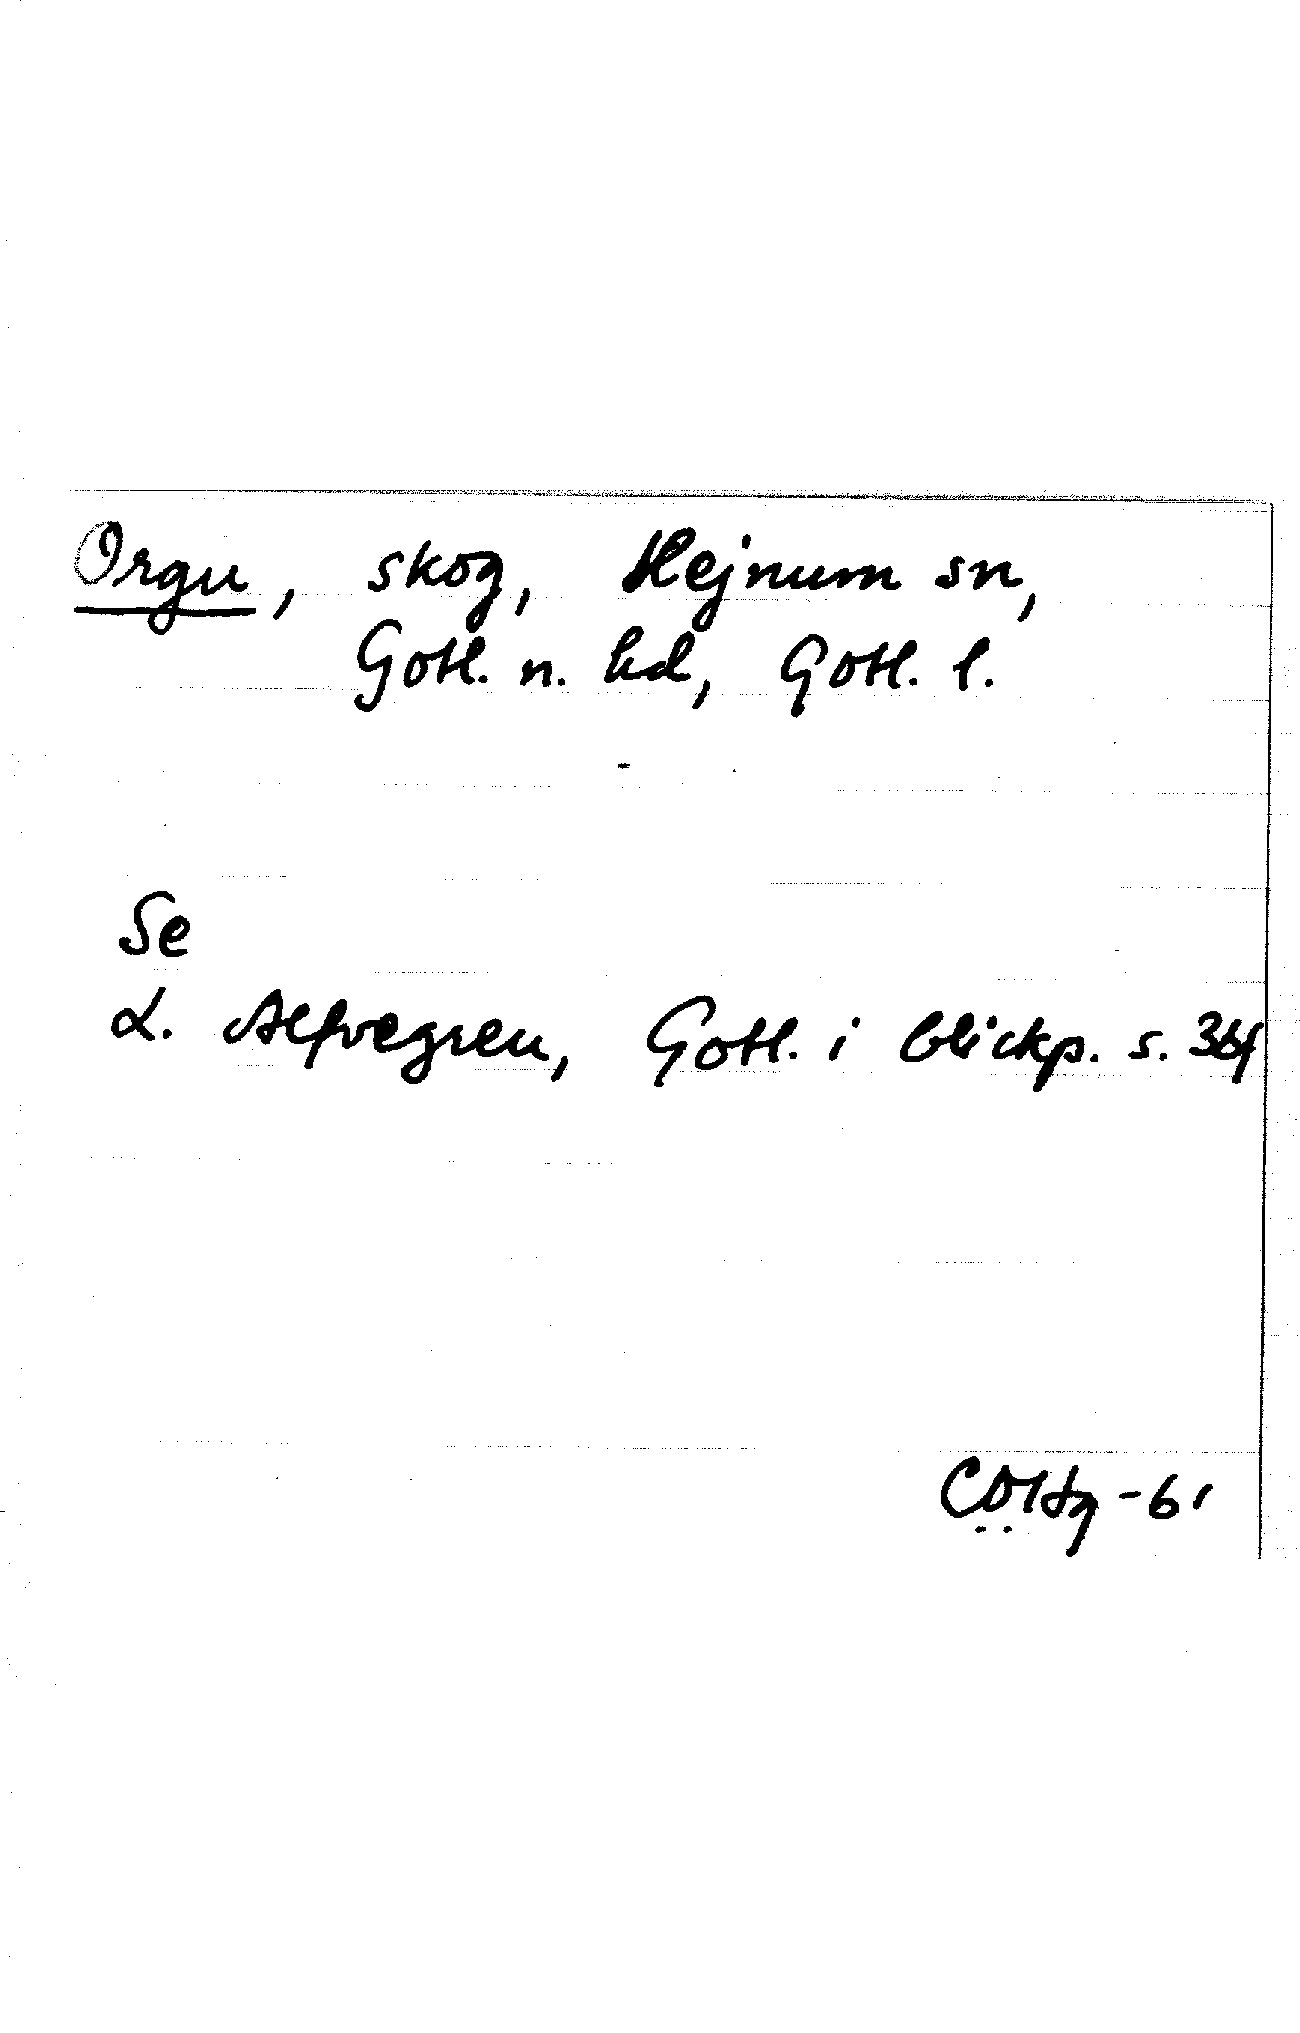 Orgu, skog, Hejnum sn,
Gotl. n. hd, Gotl. l.
Se
L. Alfvegren, Gotl. i blickp. s. 36f
-61